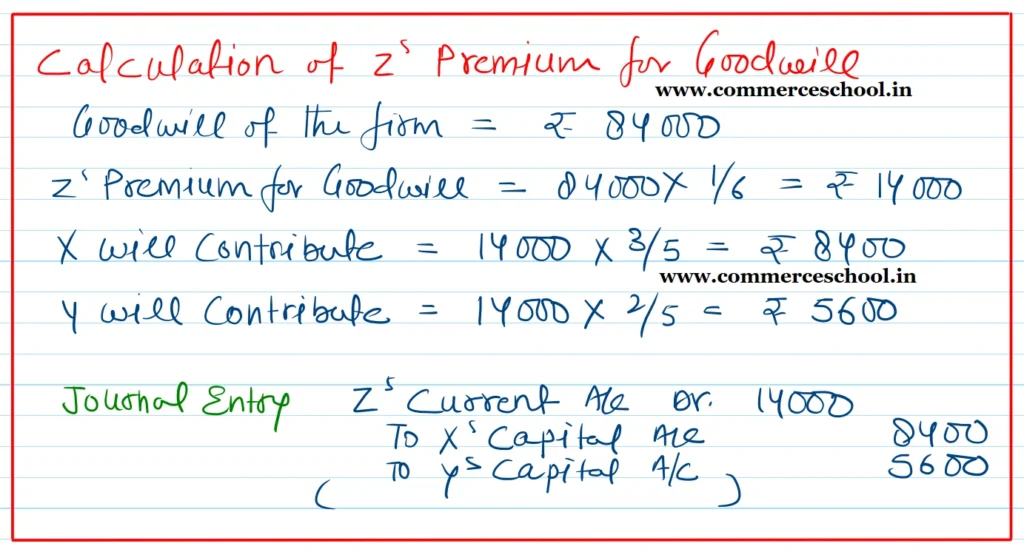 Calculation of Z's Premium for Goodwill
www.commerceschool.in
Goodwill of the firm = ₹ 84000
Z' Premium for Goodwill = 84000 X 1/6 = ₹ 14000
X will Contribute = 14000 X 3/5 = ₹ 8400
www.commerceschool.in
Y will Contribute = 14000 X 2/5 = ₹ 5600
Journal Entry Z's Current A/c Dr. 14000
To X's Capital A/c 8400
To Y's Capital A/C 5600
( )